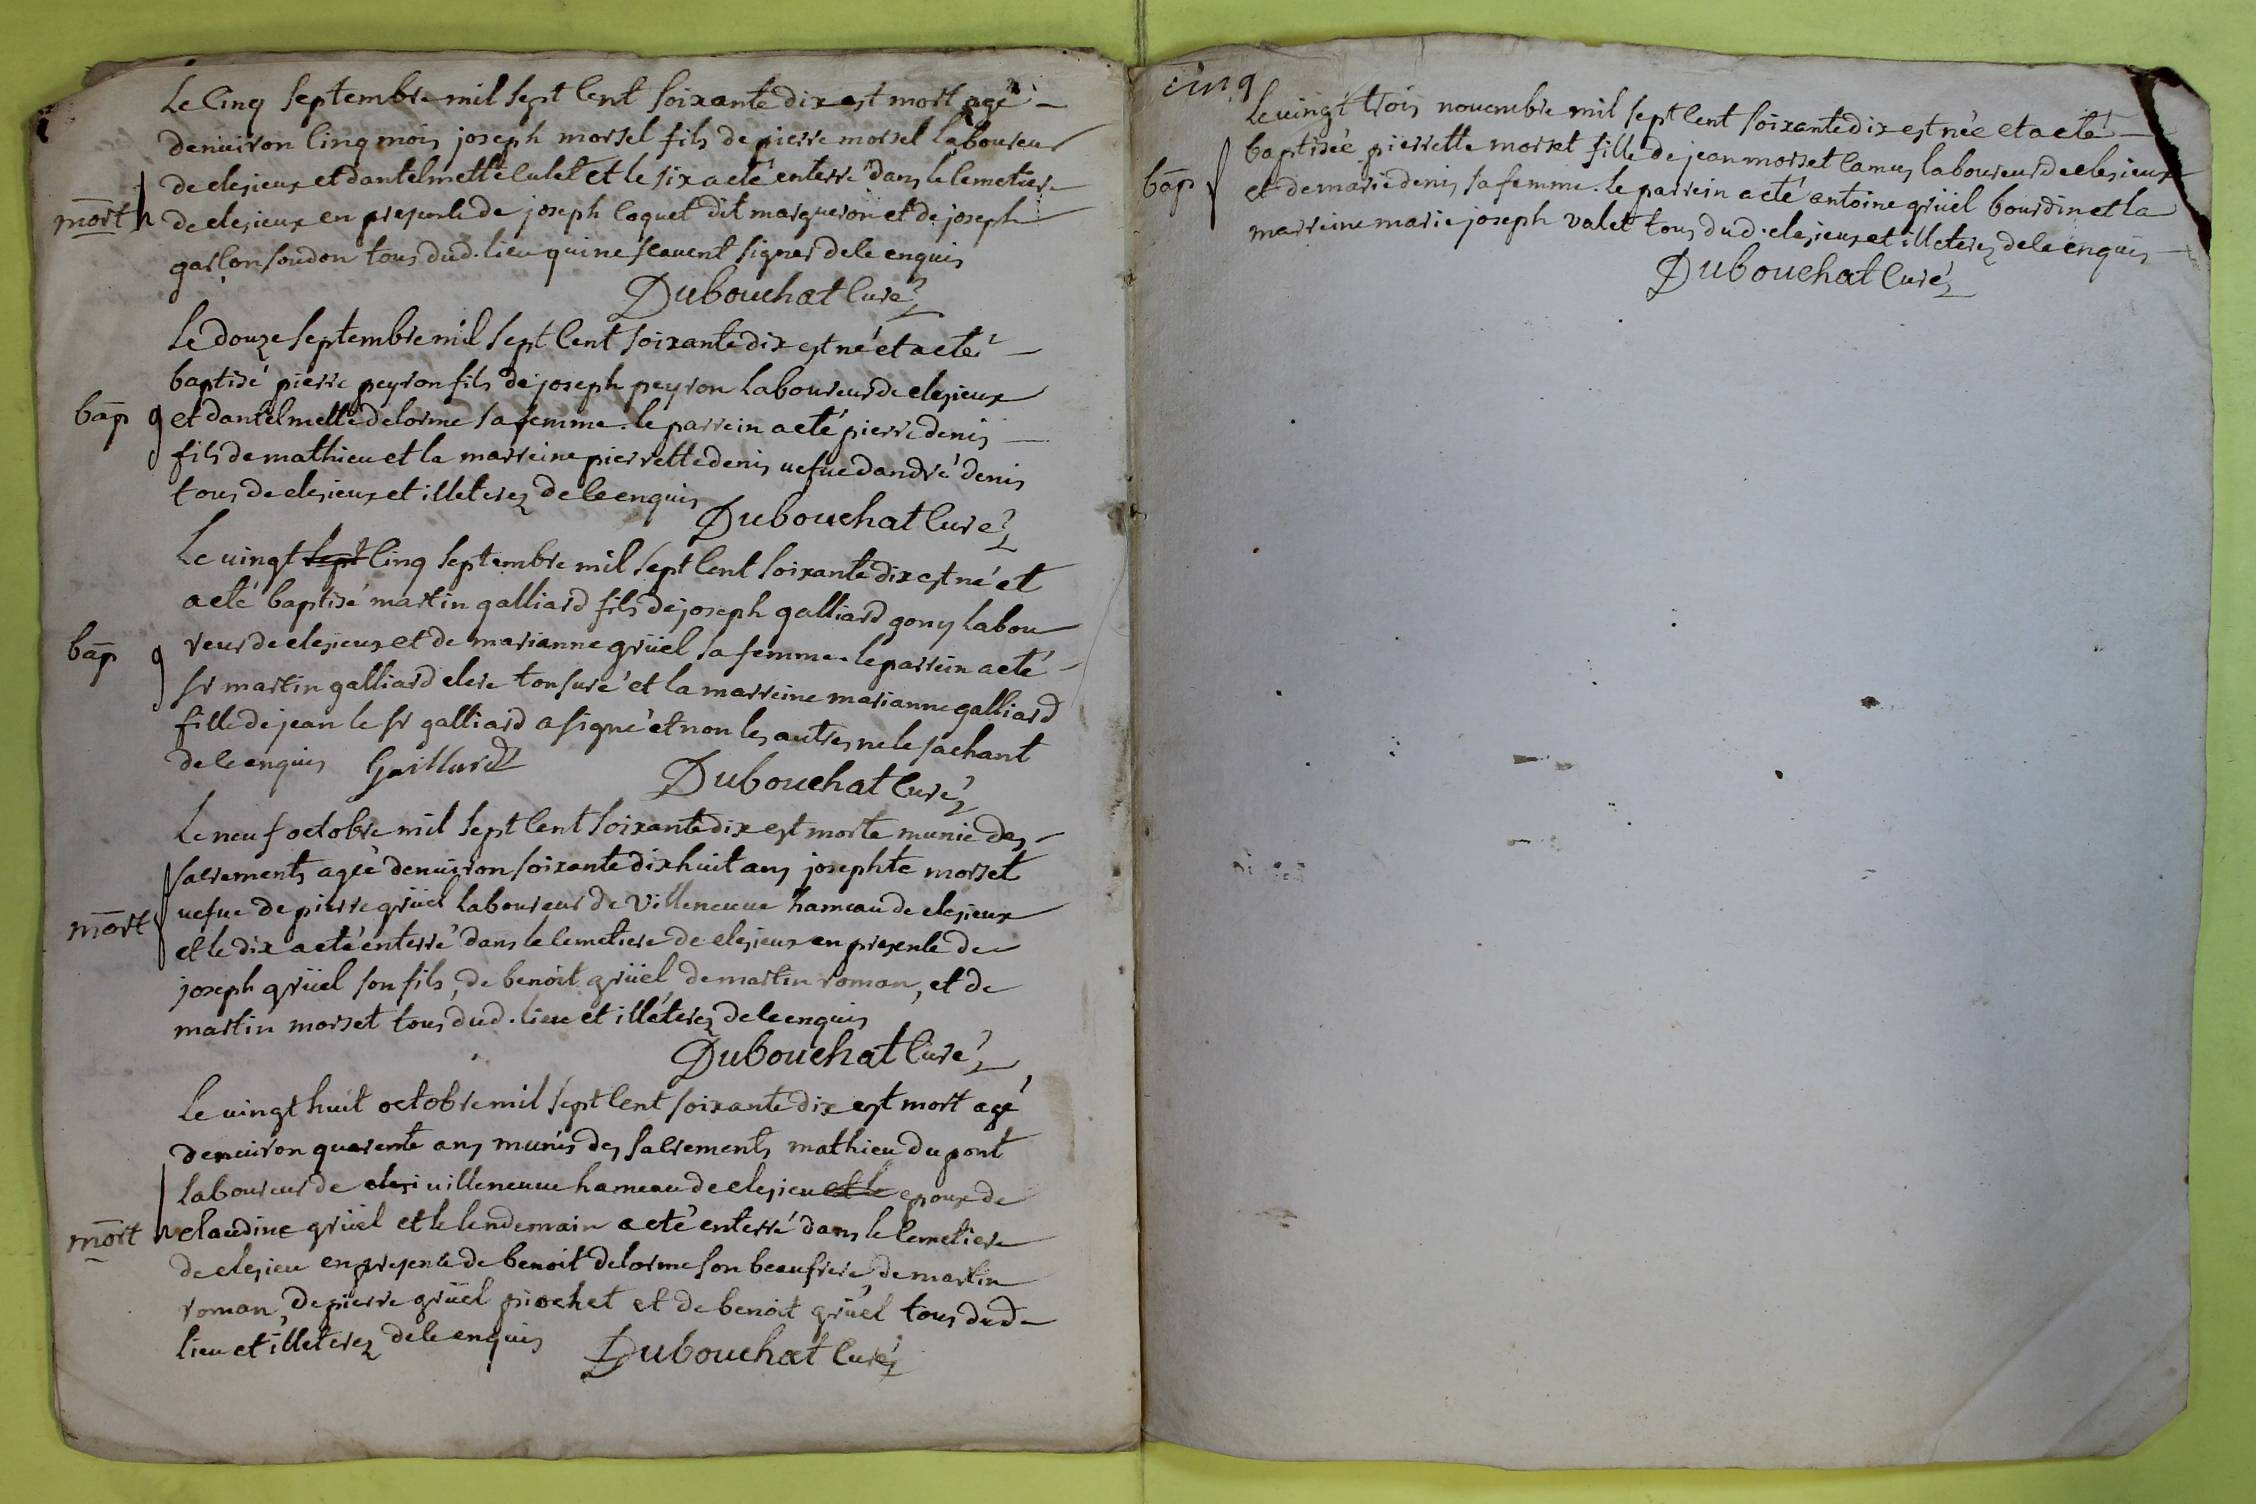 Le cinq septembre mil sept cent soixante dix est mort agé
denuiron cinq mois joseph morsel fils de pierre morsel laboureur
de clesieux et dantelmette culet et le six a eté enterré dans le cemetiere
mort de clesieux en presence de joseph coquet dit margueron et de joseph
garcon soudon tous dud. lieu qui ne scauent signer de ce enquis
Dubouchat curé
Le douze septembre mil sept cent soixante dix est né et a eté
baptisé pierre peyron fils de joseph peyron laboureur de clesieux
bap et dantelmette delorme sa femme. le parrein a eté pierre denis
fils de mathieu et la marreine pierrette denis uefue dandré denis
tous de clesieux et illeterez de ce enquis
Dubouchat curé
Le uingt sept cinq septembre mil sept cent soixante dix est né et
a eté baptisé martin galliard fils de joseph galliard gony labou
bap reur de clesieux et de marianne grüel sa femme. le parrein a eté
sr martin galliard clerc tonsuré et la marreine marianne galliard
fille de jean le sr galliard a signé et non les autres ne le sachant
de ce enquis Gaillard
Dubouchat curé
Le neuf octobre mil sept cent soixante dix est morte munie des
sacrements agée denuiron soixante dix huit ans josephte morset
uefue de pierre grüel laboureur de villeneuue hameau de clesieux
mort et le dix a eté enterré dans le cemetiere de clesieux en presence de
joseph grüel son fils, de benoit grüel, de martin roman, et de
martin morset tous dud. lieu et illéterez de ce enquis
Dubouchat curé
Le uingt huit octobre mil sept cent soixante dix est mort agé
denuiron quarente ans munis des sacrements mathieu dupont
laboureur de clesi uilleneuue hameau de clesieu et le epoux de
mort claudine grüel et le lendemain a eté enterré dans le cemetiere
de clesieu en presence de benoit delorme son beaufrere, de martin
roman, de pierre grüel piochet et de benoit grüel tous dud
lieu et illeterez de ce enquis
Dubouchat curé
cinq
Le uingt trois nouembre mil sept cent soixante dix est née et a eté
baptisée pierrette morset fille de jean morset camus laboureur de clesieux
bap et de marie denis sa femme. le parrein a eté antoine grüel bourdin et la
marreine marie joseph valet tous dud. clesieux et illeterez de ce enquis
Dubouchat curé